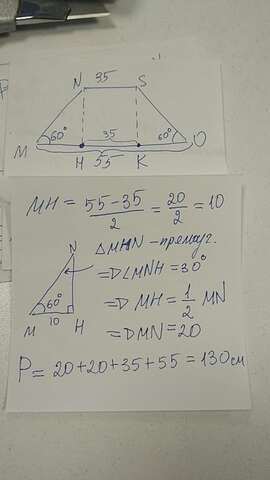 N 35 S
60° 35 60°
M H K O
55
MH = 55-35/2 = 20/2 = 10
N
△MHN - прямоуг.
=> ∠MNH = 30°
60° => MH = 1/2 MN
M 10 H => MN = 20
P = 20+20+35+55 = 130 см